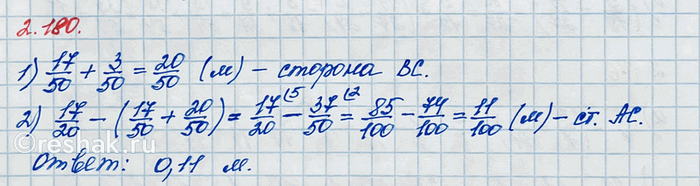 2.180.
1) 17/50 + 3/50 = 20/50 (м) – сторона ВС.
2) 17/20 – (17/50 + 20/50) = 17/20 (5 – 37/50 (2 = 85/100 – 74/100 = 11/100 (м) – ст. АС.
Ответ: 0,11 м.
©reshak.ru